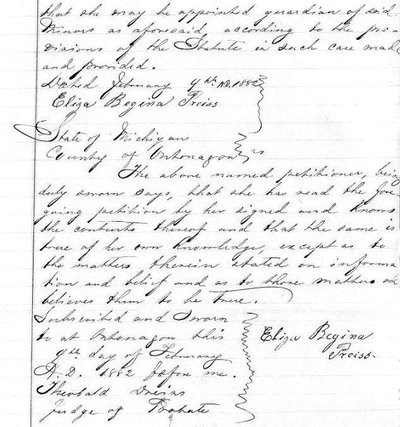 that she may be appointed guardian of said
Minors as aforesaid, according to the pro-
visions of the Statute in such case made
and provided.
Dated February 9th A.D. 1882
Eliza Regina Freiss
State of Michigan
County of Ontonagon ss
The above named petitioner, being
duly sworn says, that she has read the fore
going petition by her signed and knows
the contents thereof and that the same is
true of her own knowledge, except as to
the matters therein stated on informa
tion and belief and as to those matters she
believes them to be true.
Subscribed and Sworn
to at Ontonagon this
9th day of February
A.D. 1882 before me.
Theobald
Judge of Probate
Eliza Regina
Freiss.